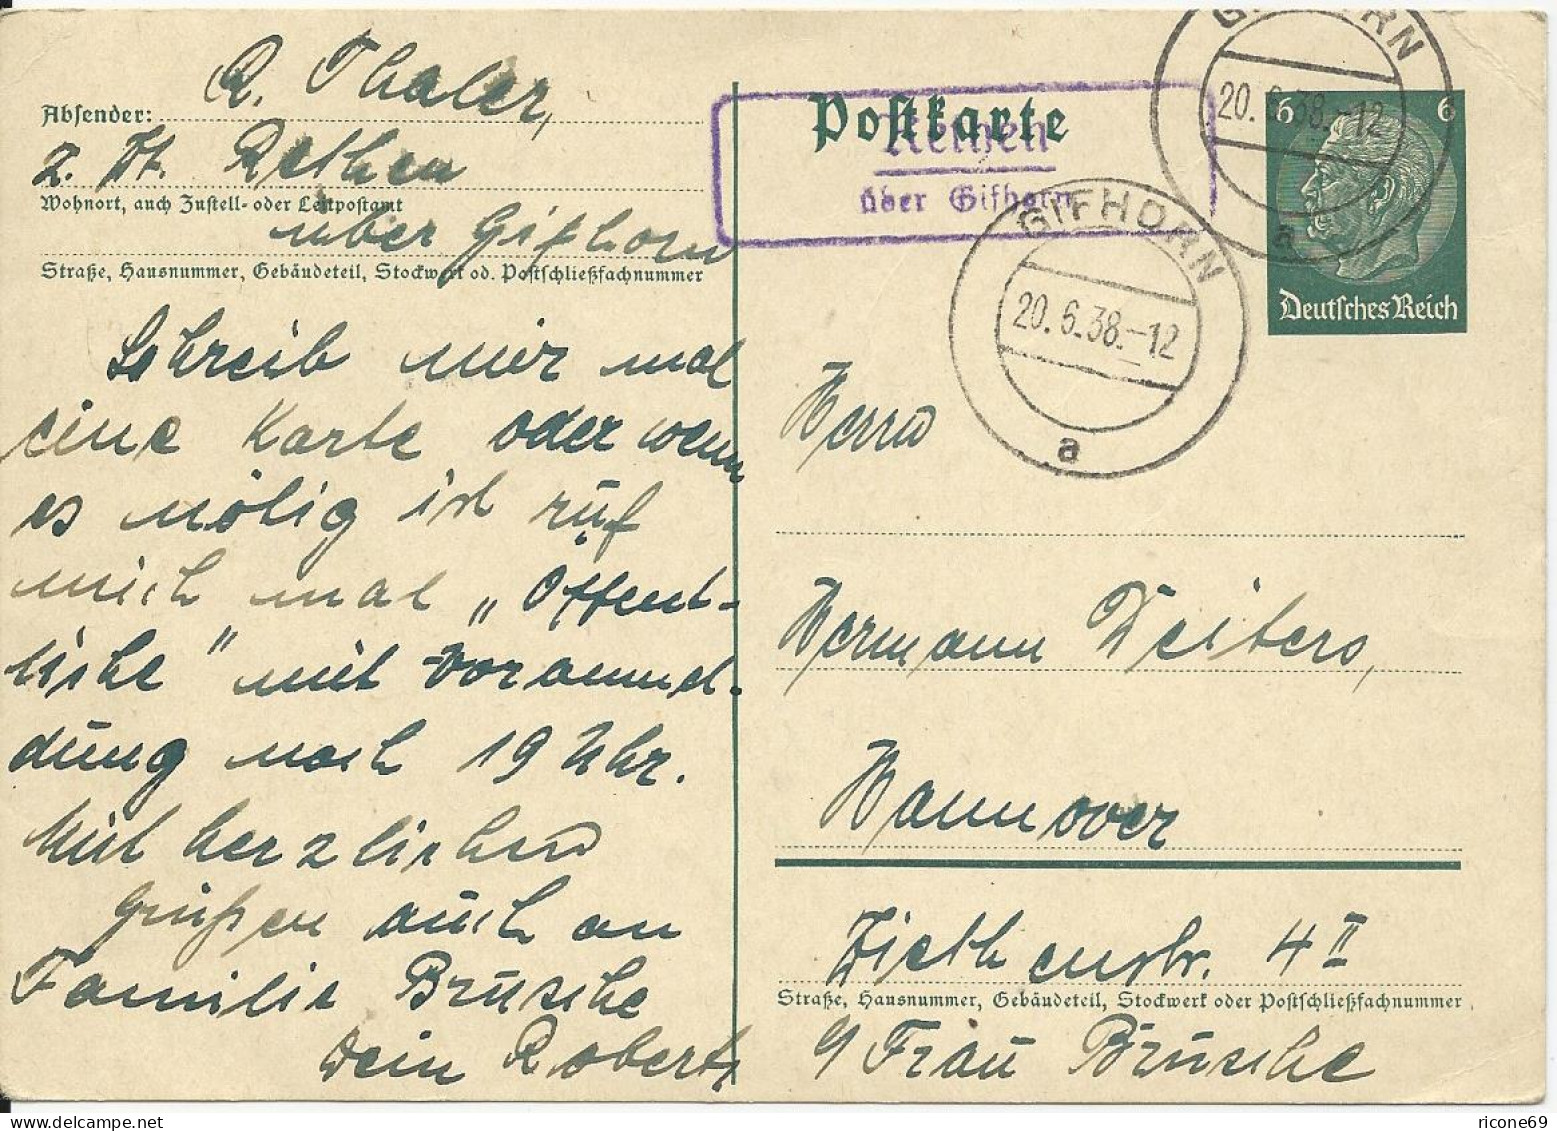 Absender: R. Thaler,
z. Zt. Rethen
Wohnort, auch Zustell- oder Leitpostamt
über Gifhorn
Straße, Hausnummer, Gebäudeteil, Stockwerk od. Postschließfachnummer
Schreib mir mal
eine Karte oder wenn
es nötig ist ruf
mich mal „Öffent-
liche" mit Voranmel-
dung nach 19 Uhr.
Mit herzlichen
Grüßen auch an
Familie Brüsche
Dein Robert
Postkarte
Rethen
über Gifhorn
GIFHORN
20.6.38.-12
a
6 6
Deutsches Reich
GIFHORN
20.6.38.-12
a
Herrn
Hermann Deiters,
Hannover
Ziethenstr. 4 II
Straße, Hausnummer, Gebäudeteil, Stockwerk oder Postschließfachnummer
Frau Brüsche
ricone69